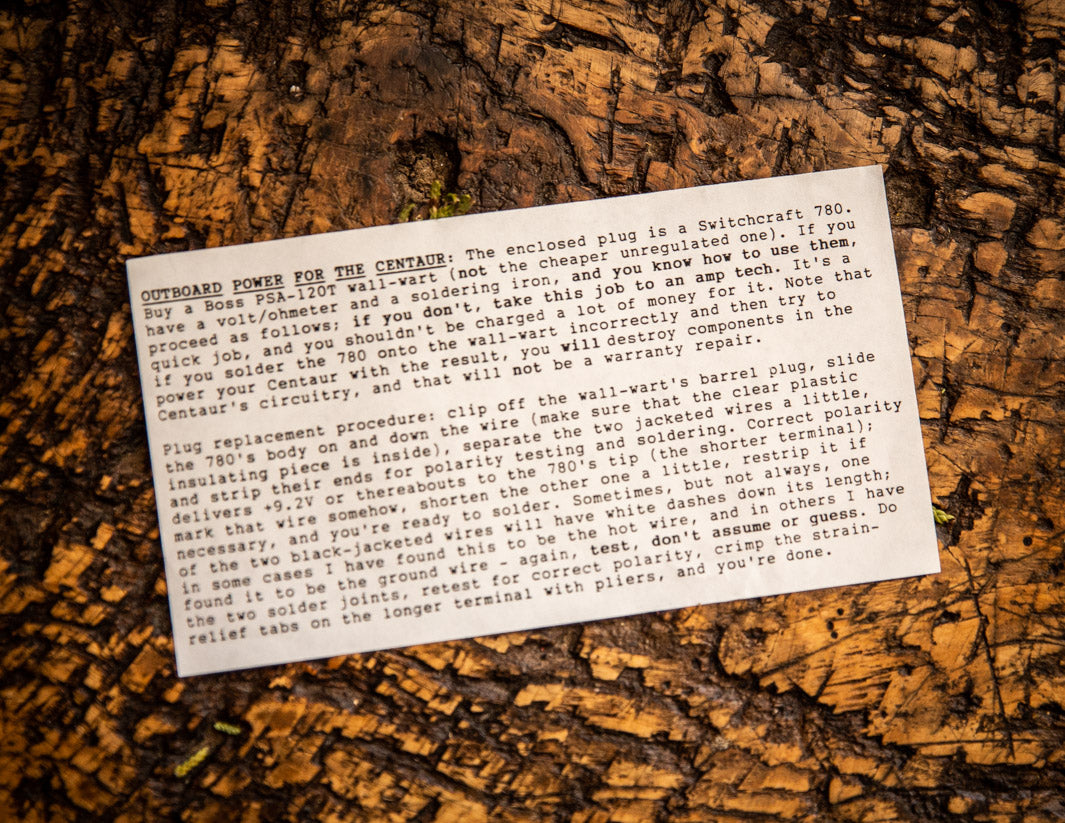 OUTBOARD POWER FOR THE CENTAUR: The enclosed plug is a Switchcraft 780.
Buy a Boss PSA-120T wall-wart (not the cheaper unregulated one). If you
have a volt/ohmeter and a soldering iron, and you know how to use them,
proceed as follows; if you don't, take this job to an amp tech. It's a
quick job, and you shouldn't be charged a lot of money for it. Note that
if you solder the 780 onto the wall-wart incorrectly and then try to
power your Centaur with the result, you will destroy components in the
Centaur's circuitry, and that will not be a warranty repair.
Plug replacement procedure: clip off the wall-wart's barrel plug, slide
the 780's body on and down the wire (make sure that the clear plastic
insulating piece is inside), separate the two jacketed wires a little,
and strip their ends for polarity testing and soldering. Correct polarity
delivers +9.2V or thereabouts to the 780's tip (the shorter terminal);
mark that wire somehow, shorten the other one a little, restrip it if
necessary, and you're ready to solder. Sometimes, but not always, one
of the two black-jacketed wires will have white dashes down its length;
in some cases I have found this to be the hot wire, and in others I have
found it to be the ground wire - again, test, don't assume or guess. Do
the two solder joints, retest for correct polarity, crimp the strain-
relief tabs on the longer terminal with pliers, and you're done.